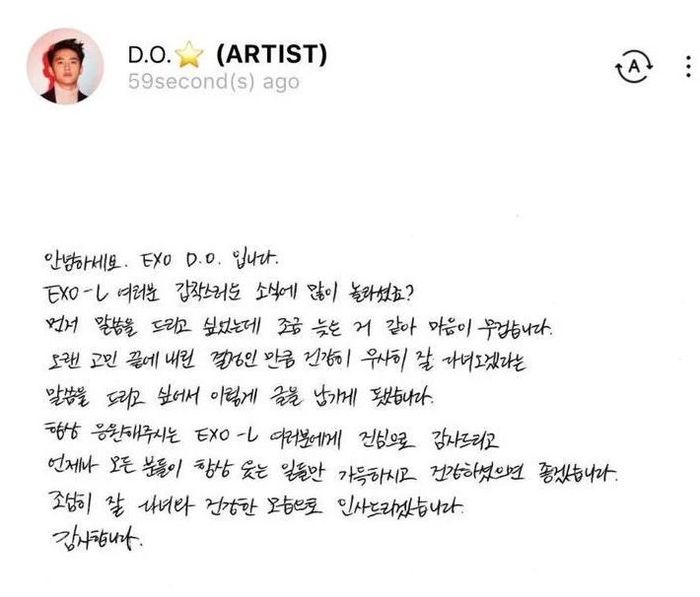 D.O.⭐ (ARTIST)
59second(s) ago
A
안녕하세요. EXO D.O. 입니다.
EXO-L 여러분 갑작스러운 소식에 많이 놀라셨죠?
먼저 말씀을 드리고 싶었는데 조금 늦는 거 같아 마음이 무겁습니다.
오랜 고민 끝에 내린 결정인 만큼 건강히 무사히 잘 다녀오겠다는
말씀을 드리고 싶어서 이렇게 글을 남기게 됐습니다.
항상 응원해주시는 EXO-L 여러분에게 진심으로 감사드리고
언제나 모든 분들이 항상 웃는 일들만 가득하시고 건강하셨으면 좋겠습니다.
조심히 잘 다녀와 건강한 모습으로 인사드리겠습니다.
감사합니다.